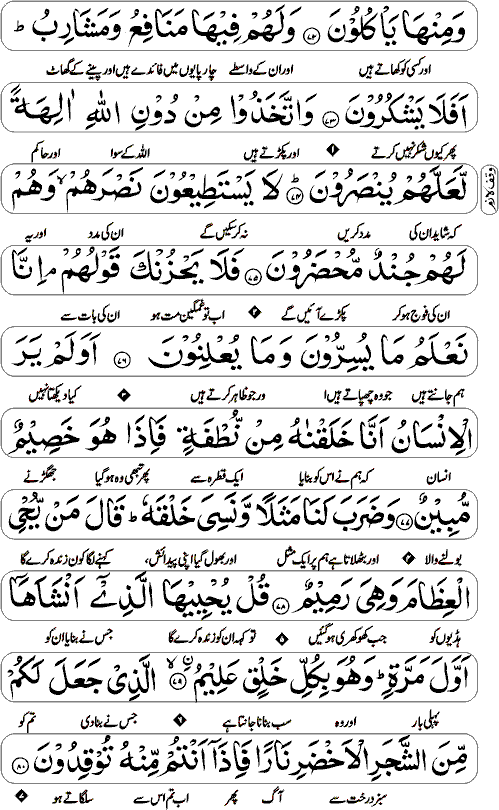 وَمِنْهَا يَاْكُلُوْنَ ﴿۷۲﴾ وَلَهُمْ فِيْهَا مَنَافِعُ وَمَشَارِبُ ؕ
اور کسی کو کھاتے ہیں اور ان کے واسطے چارپایوں میں فائدے ہیں اور پینے کے گھاٹ
اَفَلَا يَشْكُرُوْنَ ﴿۷۳﴾ وَاتَّخَذُوْا مِنْ دُوْنِ اللّٰهِ اٰلِهَةً
پھر کیوں شکر نہیں کرتے ۱ اور پکڑتے ہیں اللہ کے سوا اور حاکم
لَّعَلَّهُمْ يُنْصَرُوْنَ ؕ﴿۷۴﴾ لَا يَسْتَطِيْعُوْنَ نَصْرَهُمْ ۙ وَهُمْ
وقف لازم
کہ شاید ان کی مدد کریں نہ کرسکیں گے ان کی مدد اور یہ
لَهُمْ جُنْدٌ مُّحْضَرُوْنَ ﴿۷۵﴾ فَلَا يَحْزُنْكَ قَوْلُهُمْ ۘ اِنَّا
ان کی فوج ہو کر پکڑے آئیں گے ۲ اب تو غمگین مت ہو ان کی بات سے
نَعْلَمُ مَا يُسِرُّوْنَ وَمَا يُعْلِنُوْنَ ﴿۷۶﴾ اَوَلَمْ يَرَ
ہم جانتے ہیں جو وہ چھپاتے ہیں ا ور جو ظاہر کرتے ہیں ۳ کیا دیکھتا نہیں
الْاِنْسَانُ اَنَّا خَلَقْنٰهُ مِنْ نُّطْفَةٍ فَاِذَا هُوَ خَصِيْمٌ
انسان کہ ہم نے اس کو بنایا ایک قطرہ سے پھر تبھی وہ ہو گیا جھگڑنے
مُّبِيْنٌ ﴿۷۷﴾ وَضَرَبَ لَنَا مَثَلًا وَّنَسِىَ خَلْقَهٗ ؕ قَالَ مَنْ يُّحْىِ
بولنے والا ۴ اور بٹھلاتا ہے ہم پر ایک مثل اور بھول گیا اپنی پیدائش، کہنے لگا کون زندہ کرے گا
الْعِظَامَ وَهِىَ رَمِيْمٌ ﴿۷۸﴾ قُلْ يُحْيِيْهَا الَّذِىْٓ اَنْشَاَهَآ
ہڈیوں کو جب کھوکھری ہو گئیں ۵ تو کہہ ان کو زندہ کرے گا جس نے بنایا ان کو
اَوَّلَ مَرَّةٍ ؕ وَهُوَ بِكُلِّ خَلْقٍ عَلِيْمُ ۙ﴿۷۹﴾ الَّذِىْ جَعَلَ لَكُمْ
پہلی بار اور وہ سب بنانا جانتا ہے ۶ جس نے بنا دی تم کو
مِّنَ الشَّجَرِ الْاَخْضَرِ نَارًا فَاِذَآ اَنْتُمْ مِّنْهُ تُوْقِدُوْنَ ﴿۸۰﴾
سبز درخت سے آگ پھر اب تم اس سے سلگاتے ہو